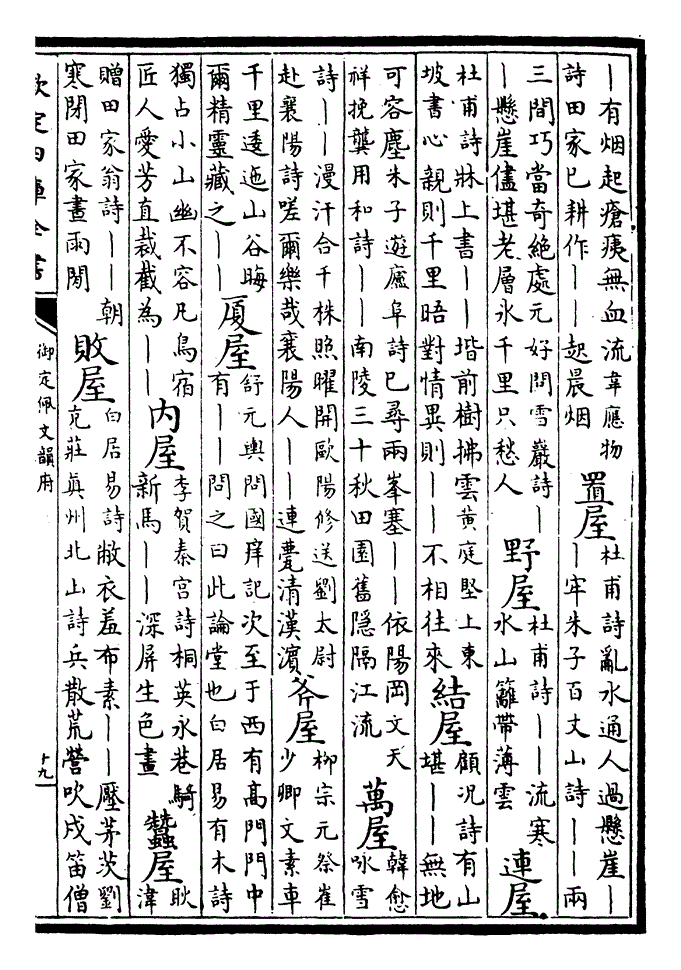 ｜有烟起瘡痍無血流韋應物
詩田家已耕作｜｜起晨烟
置屋
杜甫詩亂水通人過懸崖｜
｜牢朱子百丈山詩｜｜兩
三間巧當奇絕處元好問雪巖詩｜
｜懸崖儘堪老層氷千里只愁人
野屋
杜甫詩｜｜流寒
水山籬帶薄雲
連屋
杜甫詩牀上書｜｜堦前樹拂雲黄庭堅上東
坡書心親則千里晤對情異則｜｜不相往來
結屋
顧况詩有山
堪｜｜無地
可容塵朱子遊廬阜詩已尋兩峯塞｜｜依陽岡文天
祥挽龔用和詩｜｜南陵三十秋田園舊隱隔江流
萬屋
韓愈
詠雪
詩｜｜漫汗合千株照曜開歐陽修送劉太尉
赴襄陽詩嗟爾樂哉襄陽人｜｜連甍清漢濵
斧屋
柳宗元祭崔
少卿文素車
千里逶迤山谷晦
爾精靈藏之｜｜
厦屋
舒元輿問國庠記次至于西有髙門門中
有｜｜問之曰此論堂也白居易有木詩
獨占小山幽不容凡鳥宿
匠人愛芳直裁截為｜｜
内屋
李賀秦宫詩桐英永巷騎
新馬｜｜深屏生色畫
蠶屋
耿
湋
贈田家翁詩｜｜朝
寒閉田家晝雨閒
敗屋
白居易詩敝衣羞布素｜｜壓茅茨劉
克莊眞州北山詩兵散荒營吹戍笛僧
欽定四庫全書
御定佩文韻府
十九